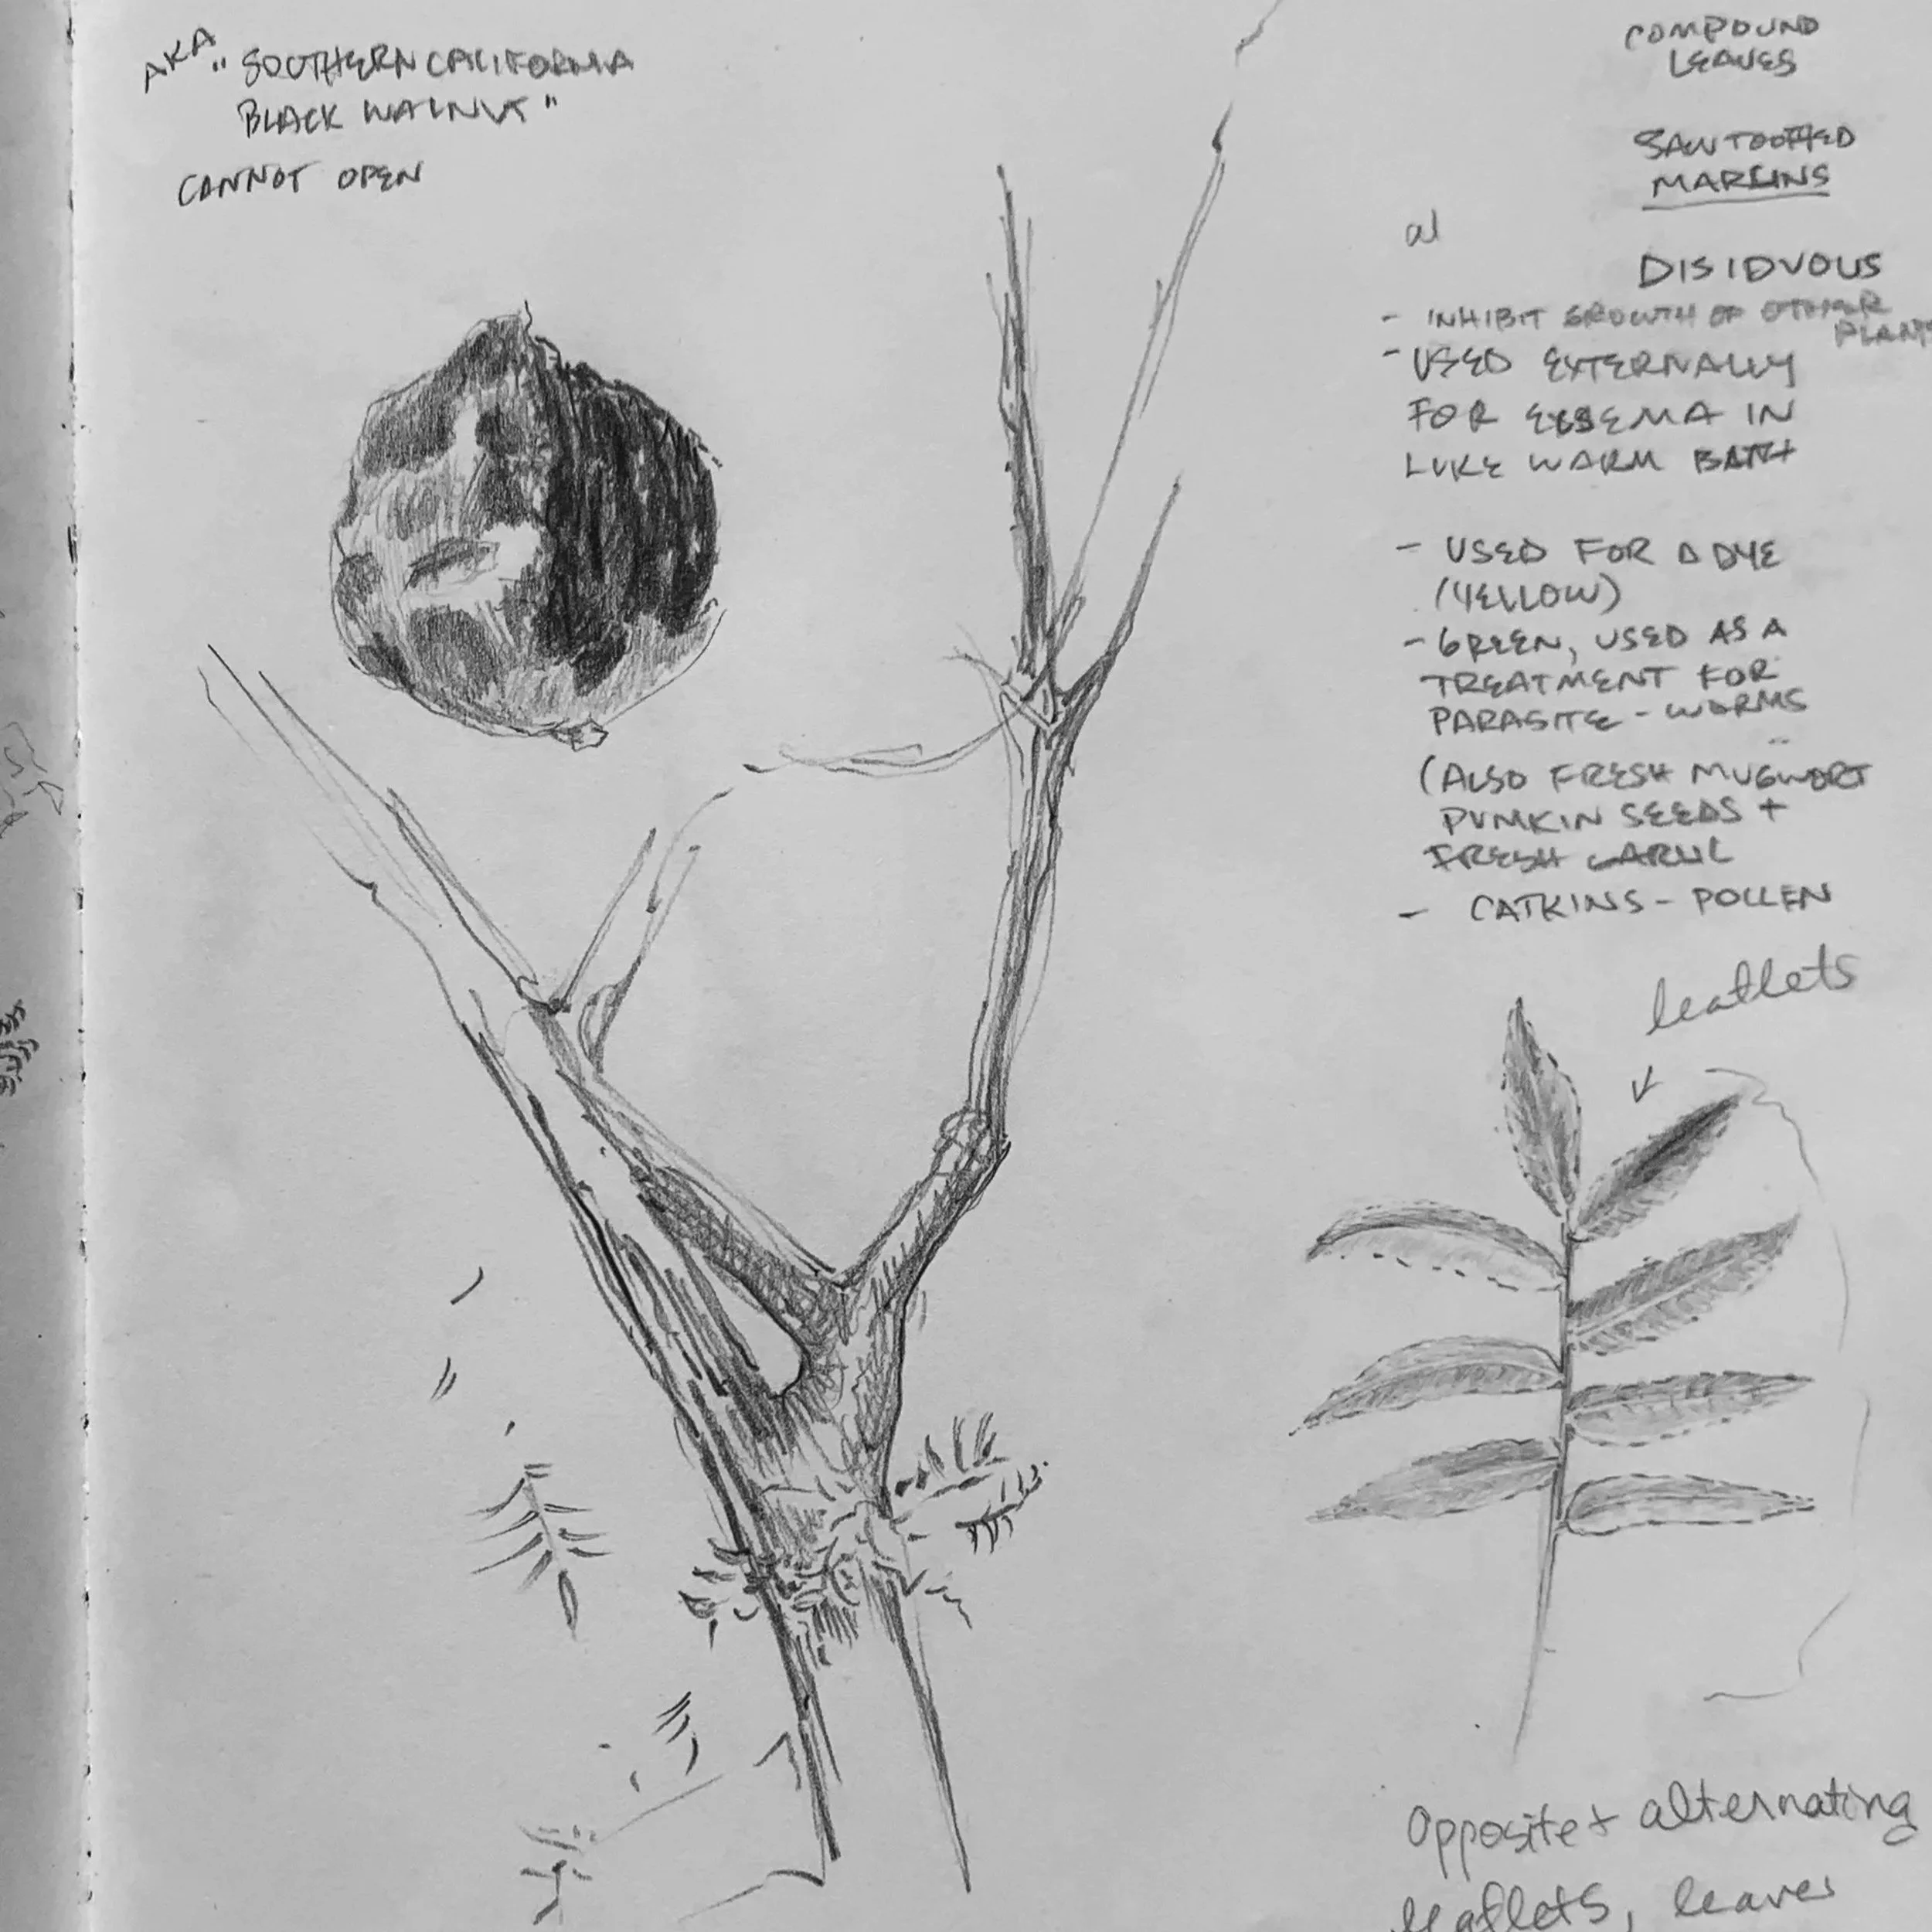 AKA "SOUTHERN CALIFORNIA
BLACK WALNUT"
CANNOT OPEN
COMPOUND
LEAVES
SAWTOOTHED
MARGINS
al
DISIDUOUS
- INHIBIT GROWTH OF OTHER
PLANTS
- USED EXTERNALLY
FOR EXSEMA IN
LUKE WARM BATH
- USED FOR A DYE
(YELLOW)
- GREEN, USED AS A
TREATMENT FOR
PARASITE - WORMS
(ALSO FRESH MUGWORT
PUMKIN SEEDS +
FRESH GARLIC
- CATKINS - POLLEN
leaflets
Opposite + alternating
leaflets, leaves